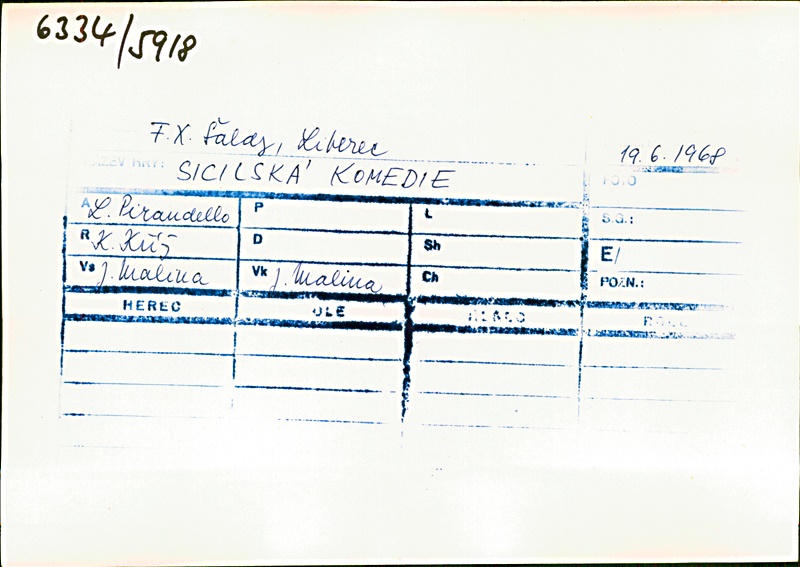 6334/5918
F.X. Šaldy, Liberec
19.6.1968
NÁZEV HRY: SICILSKÁ KOMEDIE
FOTO
A L. Pirandello P L S.G.:
R K. Kříž D Sh E/
Vs J. Malina Vk J. Malina Ch POZN.:
HEREC ROLE HEREC ROLE